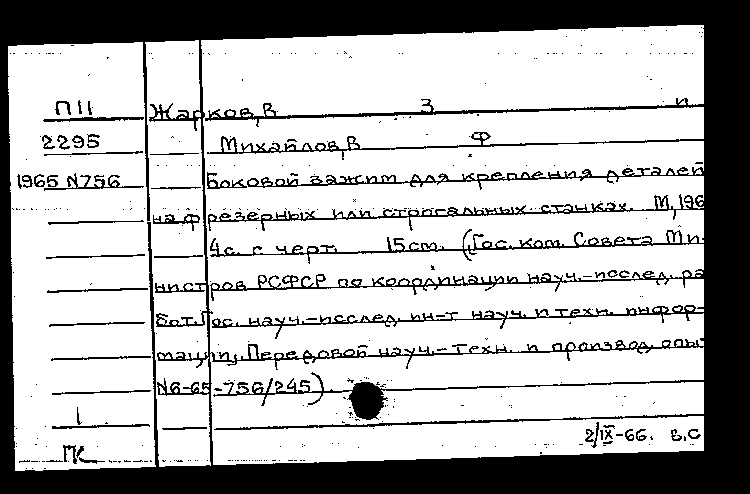 П11 Жарков, В З и
2295 Михайлов, В Ф
1965 N756 Боковой зажим для крепления деталей
на фрезерных или строгальных станках. М, 196
4с. с черт. 15см. (Гос. ком. Совета Ми-
нистров РСФСР по координации науч.-исслед. ра
бот. Гос. науч.-исслед. ин-т науч. и техн. инфор-
мации, Передовой науч.-техн. и производ. опы
N6-65-756/245).
1
2/IX-66. В.С
ПК